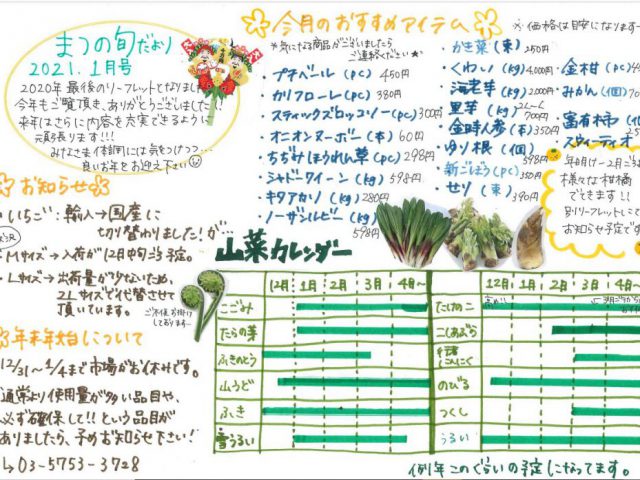 まつの旬だより
2021.1月号
2020年最後のリーフレットとなりました
今年もご覧頂き、ありがとうございました!!
来年はさらに内容を充実できるように
頑張ります!!!
みなさま体調には気をつけつつ…
良いお年をお迎え下さい
お知らせ
いちご:輸入→国産に
切り替わりました!が…
Mサイズ→入荷が12月中旬ご予定。
Lサイズ→出荷量が少ないため、
2Lサイズで代替させて
頂いています。
ご不便お掛け
しております…
年末年始について
12/31~1/4まで市場がお休みです。
通常より使用量が多い品目や、
必ず確保して!!という品目が
ありましたら、予めお知らせ下さい!
↳03-5753-3728
今月のおすすめアイテム
※気になる商品がございましたら
ご連絡ください★
※価格は目安になります
・プチベール(pc) 450円
・カリフローレ(pc) 380円
・スティックブロッコリー(pc) 300円
・オニオンヌーボー(本) 60円
・ちぢみほうれん草(pc) 298円
・シャドークイーン(kg) 598円
・キタアカリ(kg) 280円
・ノーザンルビー(kg) 598円
・かき菜(束) 250円
・くわい(kg) 4,000円
・海老芋(kg) 2,000円
・里芋(kg) 2L~L 700円
・金時人参(本) 350円
・ゆり根(個) 398円
・新ごぼう(pc) 350円
・セリ(束) 390円
・金柑(pc)
・みかん(個) 70
・富有柿
・スウィーティオ
年明け~2月ごろ
様々な柑橘
できます!!
別リーフレットにて
お知らせ予定です
山菜カレンダー
12月 1月 2月 3月 4月~
こごみ
たらの芽
ふきのとう
山うど
ふき
雪うるい
12月 1月 2月 3月 4月~
たけのこ
こしあぶら
行者にんにく
のびる
つくし
うるい
例年このぐらいの予定になってます。